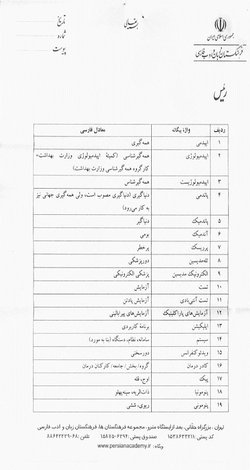 بسمه تعالی
جمهوری اسلامی ایران
فرهنگستان زبان و ادب فارسی
تاریخ
شماره
پیوست
رئیس
ردیف واژهٔ بیگانه معادل فارسی
۱ اپیدمی همه‌گیری
۲ اپیدمیولوژی همه‌گیرشناسی (کمیتهٔ اپیدمیولوژی وزارت بهداشت=
کارگروه همه‌گیرشناسی وزارت بهداشت)
۳ اپیدمیولوژیست همه‌گیرشناس
۴ پاندمی دنیاگیری (دنیاگیری مصوب است، ولی همه‌گیری جهانی نیز
به کار می‌رود)
۵ پاندمیک دنیاگیر
۶ آندمیک بومی
۷ پرریسک پرخطر
۸ تله‌مدیسین دورپزشکی
۹ الکترونیک مدیسین پزشکی الکترونیکی
۱۰ تست آزمایش
۱۱ تست آنتی‌بادی آزمایش پادتن
۱۲ آزمایش‌های پاراکلینیک آزمایش‌های پیرابالینی
۱۳ اپلیکیشن برنامهٔ کاربردی
۱۴ سیستم سامانه، نظام، دستگاه (بنا به مورد)
۱۵ ویدئوکنفرانس دورسخنی
۱۶ کادر درمان گروه/ بخش/ جامعه/ کارکنان درمان
۱۷ پیک اوج، قله
۱۸ پنومونیا ذات‌الریه، سینه‌پهلو
۱۹ پنومونی ریوی، ششی
تهران، بزرگراه حقانی، بعد از ایستگاه مترو، مجموعه فرهنگستان‌ها، فرهنگستان زبان و ادب فارسی
کد پستی: ۱۵۳۸۶۳۳۲۱۱ صندوق پستی: ۶۳۹۴-۱۵۸۷۵ تلفن: ۶۸-۸۸۶۴۲۳۳۹
وبگاه: www.persianacademy.ir